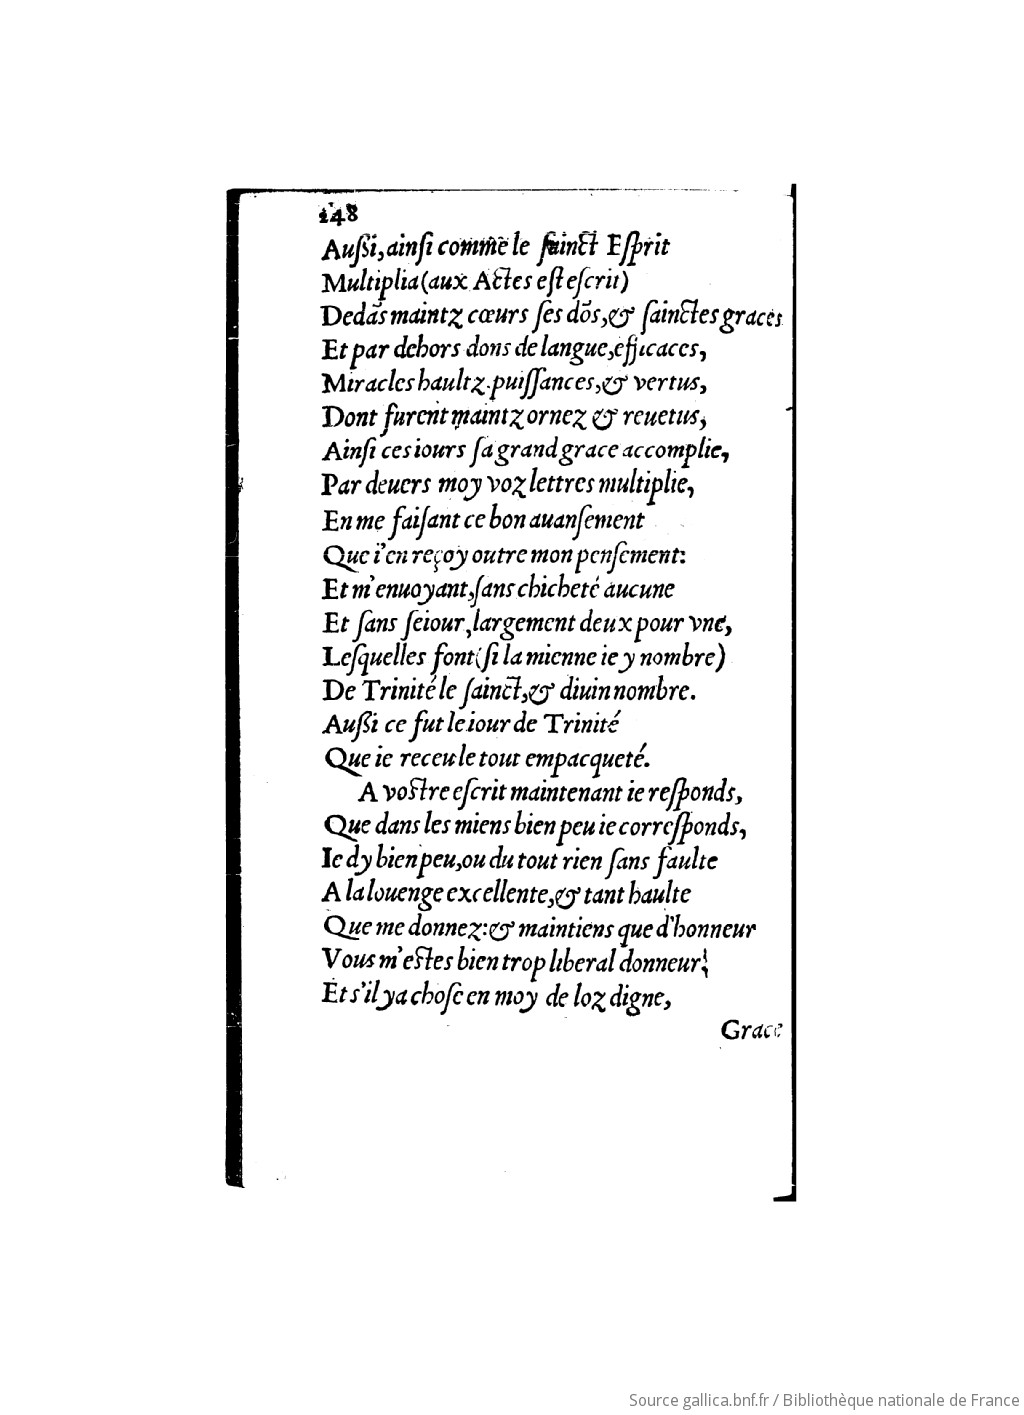 148
Auſſi, ainſi comme le ſainct Eſprit
Multiplia (aux Actes eſt eſcrit)
Dedās maintz cœurs ſes dōs, & ſainctes graces
Et par dehors dons de langue, efficaces,
Miracles haultz, puiſſances, & vertus,
Dont furent maintz ornez & reuetus,
Ainſi ces iours ſa grand grace accomplie,
Par deuers moy voz lettres multiplie,
En me faiſant ce bon auanſement
Que i'en reçoy outre mon penſement:
Et m'enuoyant, ſans chicheté aucune
Et ſans ſeiour, largement deux pour vne,
Leſquelles font (ſi la mienne ie y nombre)
De Trinité le ſainct, & diuin nombre.
Auſſi ce fut le iour de Trinité
Que ie receu le tout empacqueté.
A voſtre eſcrit maintenant ie reſponds,
Que dans les miens bien peu ie correſponds,
Ie dy bien peu, ou du tout rien ſans faulte
A la louenge excellente, & tant haulte
Que me donnez: & maintiens que d'honneur
Vous m'eſtes bien trop liberal donneur;
Et s'il y a choſe en moy de loz digne,
Grace
Source gallica.bnf.fr / Bibliothèque nationale de France